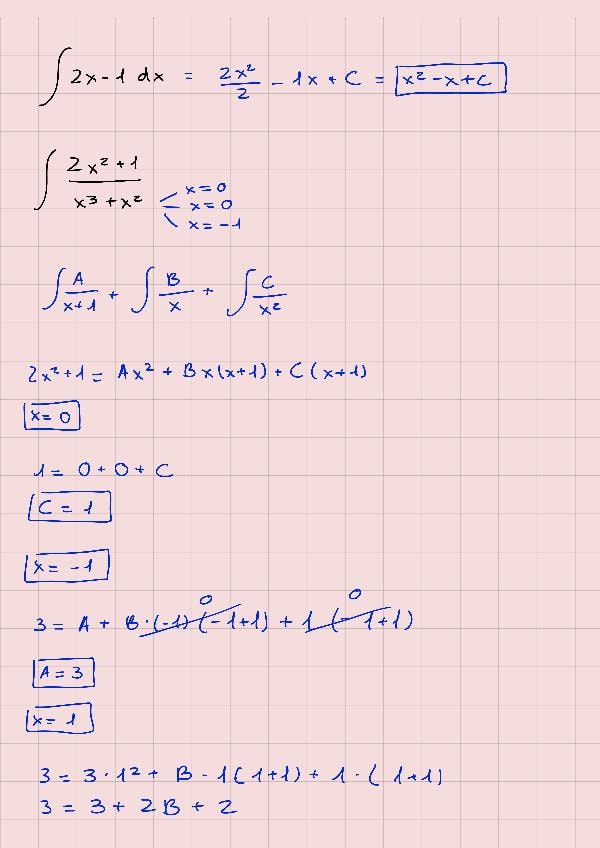 ∫ 2x-1 dx = 2x²/2 - 1x + C = x² - x + C
∫ (2x² + 1)/(x³ + x²)
x = 0
x = 0
x = -1
∫ A/(x+1) + ∫ B/x + ∫ C/x²
2x² + 1 = Ax² + Bx(x+1) + C(x+1)
x = 0
1 = 0 + 0 + C
C = 1
x = -1
0 0
3 = A + B·(-1)(-1+1) + 1(-1+1)
A = 3
x = 1
3 = 3·1² + B·1(1+1) + 1·(1+1)
3 = 3 + 2B + 2